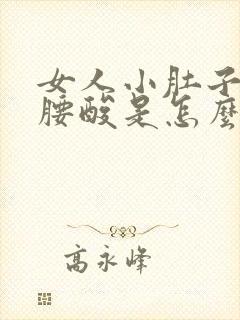 女人小肚子
腰酸是怎麼
高永峰